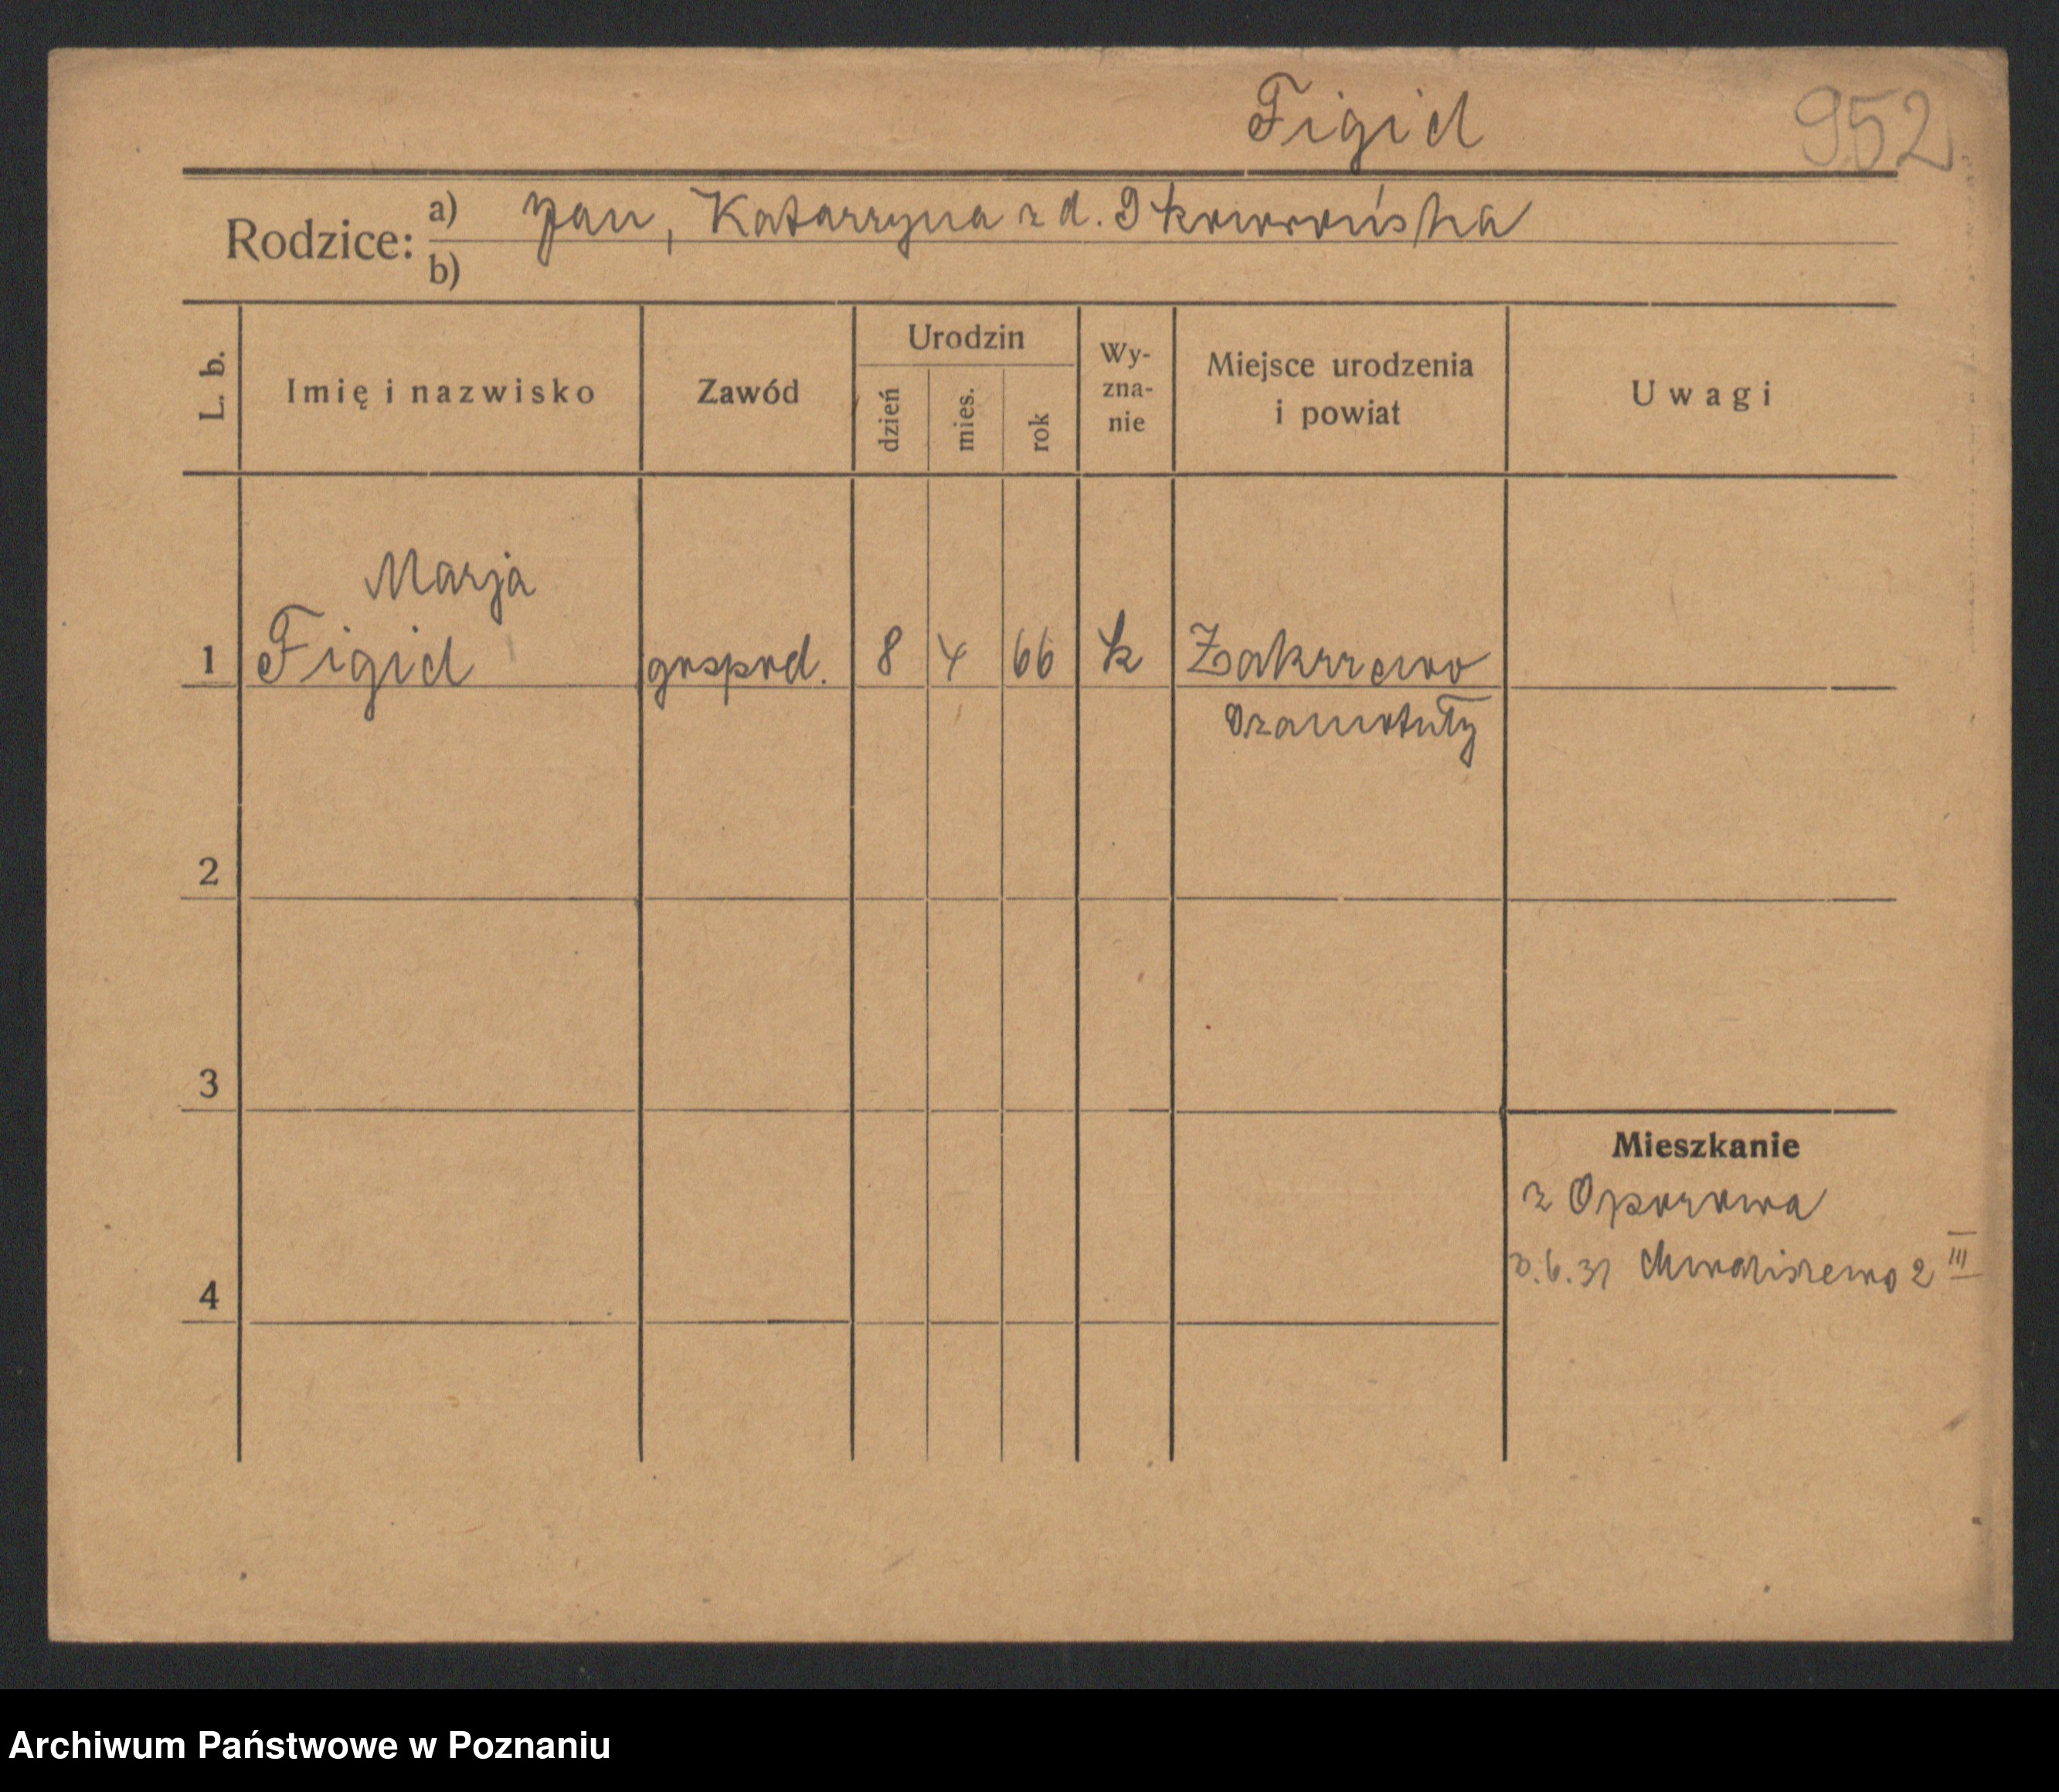 Figid 952
Rodzice: a) Jan, Katarzyna z d. Skowrońska
b)
L. b.
Imię i nazwisko
Zawód
Urodzin
dzień
mies.
rok
Wy-
zna-
nie
Miejsce urodzenia
i powiat
Uwagi
Marja
1 Figid gospod. 8 4 66 k Zakrzewo
Szamotuły
2
3
Mieszkanie
z Oporowa
3.6.31 Chwaliszewo 2 III
4
Archiwum Państwowe w Poznaniu